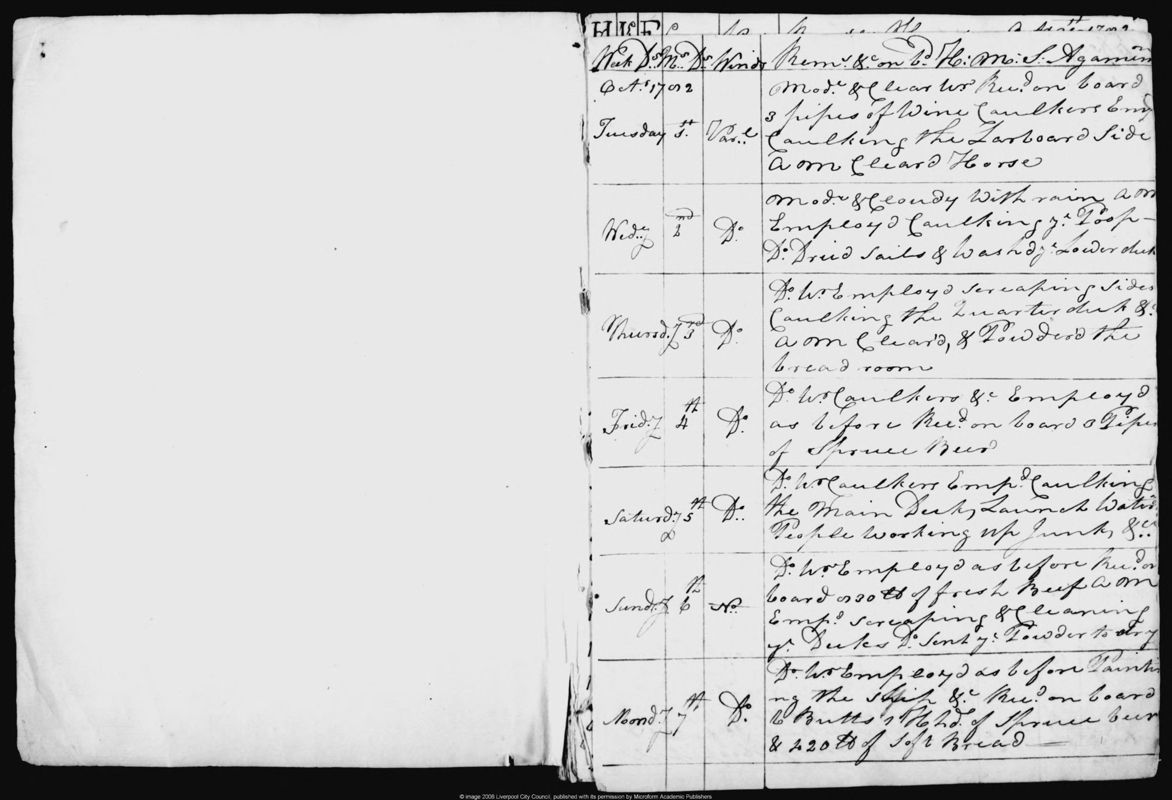 Week Ds. Ms. Ds. Winds Rems. &c. on bd. H: M: S. Agamemn
Octr. 1782
Modr. & Clear Wr. Recd. on board
3 pipes of Wine Caulkers Emp
Tuesday 1st. Varle.
Caulking the Larboard Side
A M Cleard Horse
Modr. & Cloudy With rain A M
Employd Caulking ye. Poop
Wedy. 2nd Do.
Do. Dried Sails & Washd ye. Lower deck
Do. Wr. Employd screaping Sides
Caulking the Quarter deck &c.
Thursdy. 3rd Do.
A M Clear'd, & Powder'd the
bread room
Do. Wr. Caulkers &c. Employd
as before Recd. on board 3 Pipes
Fridy. 4th Do.
of Spruce Beer
Do. Wr. Caulkers Empd. Caulking
the Main Deck, Launch Watrg.
Saturdy. 5th Do.
People Working up Junk, &c.
Do. Wr. Employd as before Recd. on
board lb of fresh Beef A M
Sundy. 6th No.
Empd. Screaping & Cleaning
ye. Decks Do. Sent ye. Powder to dry
Do. Wr. Employd as before Painti
ng the Ship &c. Recd. on board
Moondy. 7th Do.
6 Butts 1 Hhd. of Spruce beer
& 220 lb of Soft Bread
© image 2008 Liverpool City Council, published with its permission by Microform Academic Publishers